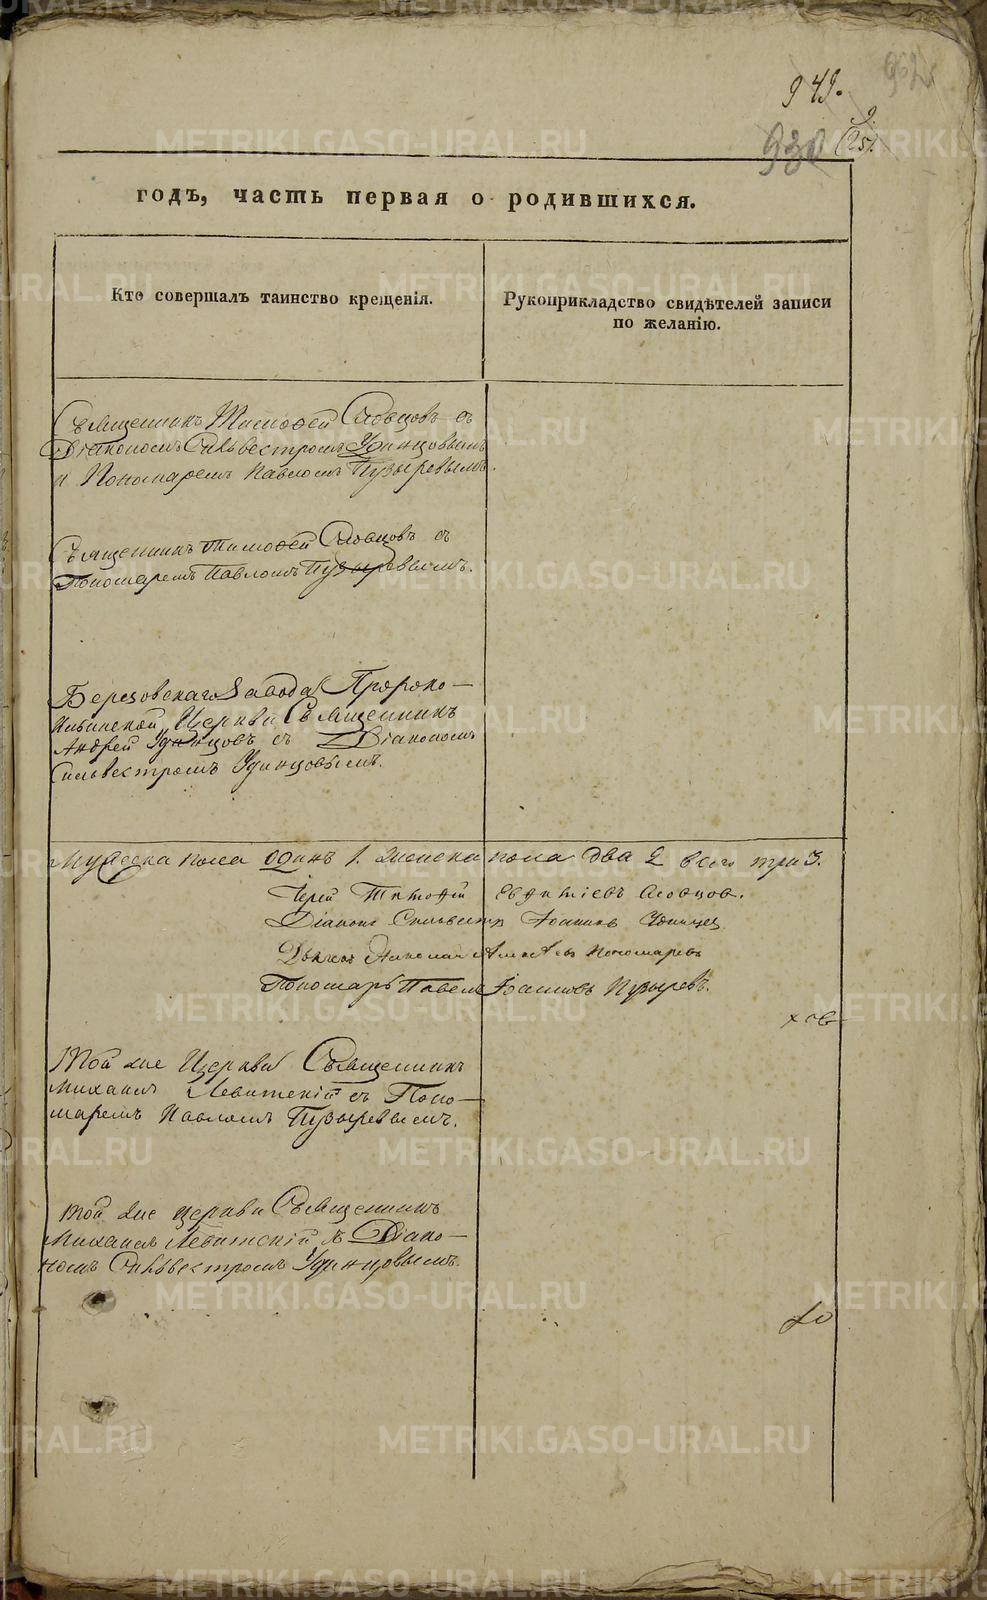 949.
930
годъ, часть первая о родившихся.
Кто совершалъ таинство крещенія.
Рукоприкладство свидѣтелей записи
по желанію.
Священникъ Тимофей Словцовъ съ
Діакономъ Сильвестромъ Удинцовымъ
и Пономаремъ Павломъ Пузыревымъ.
Священникъ Тимофей Словцовъ съ
Пономаремъ Павломъ Пузыревымъ.
Березовскаго Завода Пророко-
Ильинской Церкви Священникъ
Андрей Удинцовъ съ Діакономъ
Сильвестромъ Удинцовымъ.
Мужеска пола одинъ 1. Женска пола два 2 всего три 3.
Іерей Тимофей Словцов.
Діаконъ Сильвестръ Іоанновъ Удинцев
Дьячекъ Николай Пономаревъ
Пономарь Павелъ Іоанновъ Пузыревъ.
Той же Церкви Священникъ
Михаилъ Левитскій съ Поно-
маремъ Павломъ Пузыревымъ.
Той же церкви Священникъ
Михаилъ Левитскій съ Діако-
номъ Сильвестромъ Удинцовымъ.
METRIKI.GASO-URAL.RU